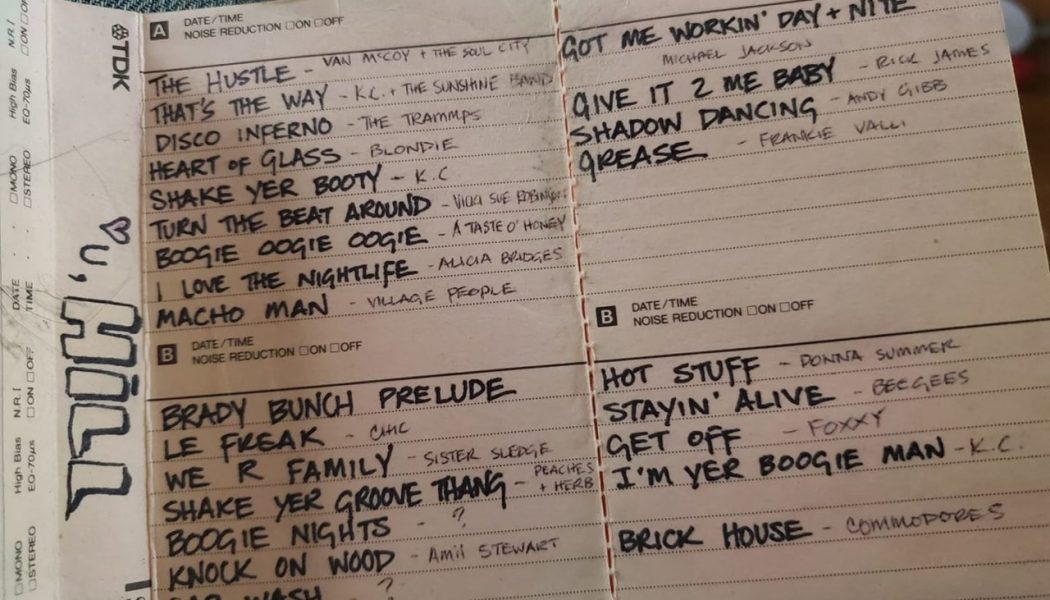 TDK
♡ U,
HILL
N.R. [
☐ON ☐OF
High Bias
EQ-70µs
☐MONO
☐STEREO
DATE
TIME
N.R. [
☐ON ☐OFF
High Bias
EQ-70µs
☐MONO
☐STEREO
A DATE/TIME
NOISE REDUCTION ☐ON ☐OFF
THE HUSTLE - VAN McCOY + THE SOUL CITY
THAT'S THE WAY - K.C. + THE SUNSHINE BAND
DISCO INFERNO - THE TRAMMPS
HEART OF GLASS - BLONDIE
SHAKE YER BOOTY - K.C
TURN THE BEAT AROUND - VICKI SUE ROBINSON
BOOGIE OOGIE OOGIE - A TASTE O' HONEY
I LOVE THE NIGHTLIFE - ALICIA BRIDGES
MACHO MAN - VILLAGE PEOPLE
B DATE/TIME
NOISE REDUCTION ☐ON ☐OFF
BRADY BUNCH PRELUDE
LE FREAK - CHIC
WE R FAMILY - SISTER SLEDGE
SHAKE YER GROOVE THANG - PEACHES
+ HERB
BOOGIE NIGHTS - ?
KNOCK ON WOOD - AMII STEWART
CAR WASH - ?
GOT ME WORKIN' DAY + NITE
MICHAEL JACKSON
GIVE IT 2 ME BABY - RICK JAMES
SHADOW DANCING - ANDY GIBB
GREASE - FRANKIE VALLI
B DATE/TIME
NOISE REDUCTION ☐ON ☐OFF
HOT STUFF - DONNA SUMMER
STAYIN' ALIVE - BEEGEES
GET OFF - FOXXY
I'M YER BOOGIE MAN - K.C.
BRICK HOUSE - COMMODORES